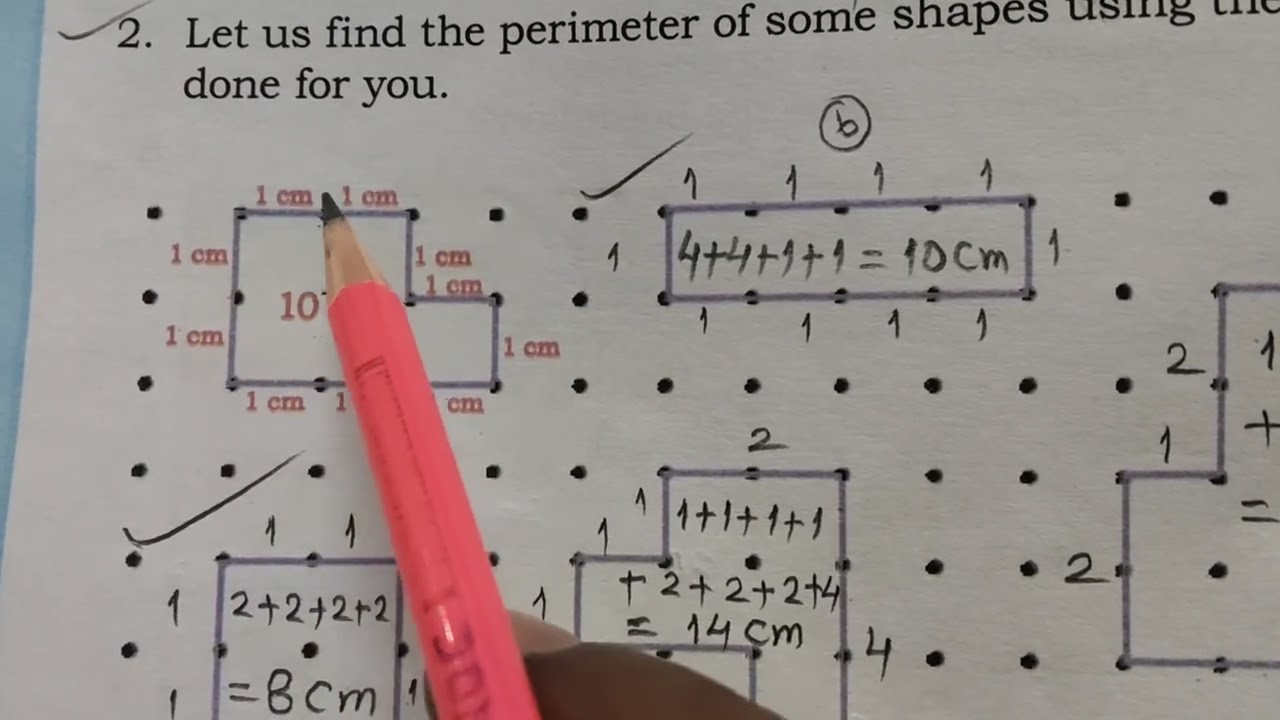 2. Let us find the perimeter of some shapes using
done for you.
b
1 cm 1 cm
1 1 1 1
1 cm
1 cm
1 cm
1 4+4+1+1 = 10 cm 1
10
1 cm
1 cm
1 1 1 1
1 cm 1 cm
2
1
+
1
=
2
1 1
1 2+2+2+2
= 8 cm
1 1
2
1 1+1+1+1
1
+ 2+2+2+4
1 = 14 cm
4
2